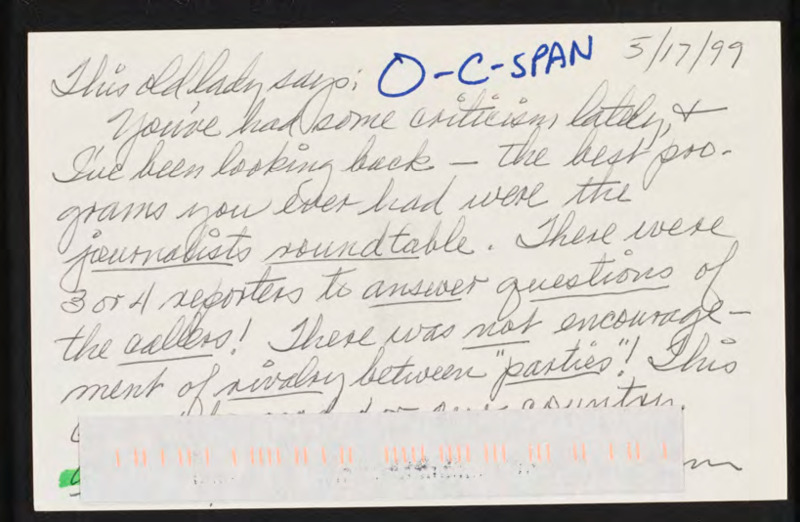 O-C-SPAN 5/17/99
This old lady says:
You've had some criticism lately, &
I've been looking back — the best pro-
grams you ever had were the
journalists roundtable. There were
3 or 4 reporters to answer questions of
the callers! There was not encourage-
ment of rivalry between "parties"! This
our country.